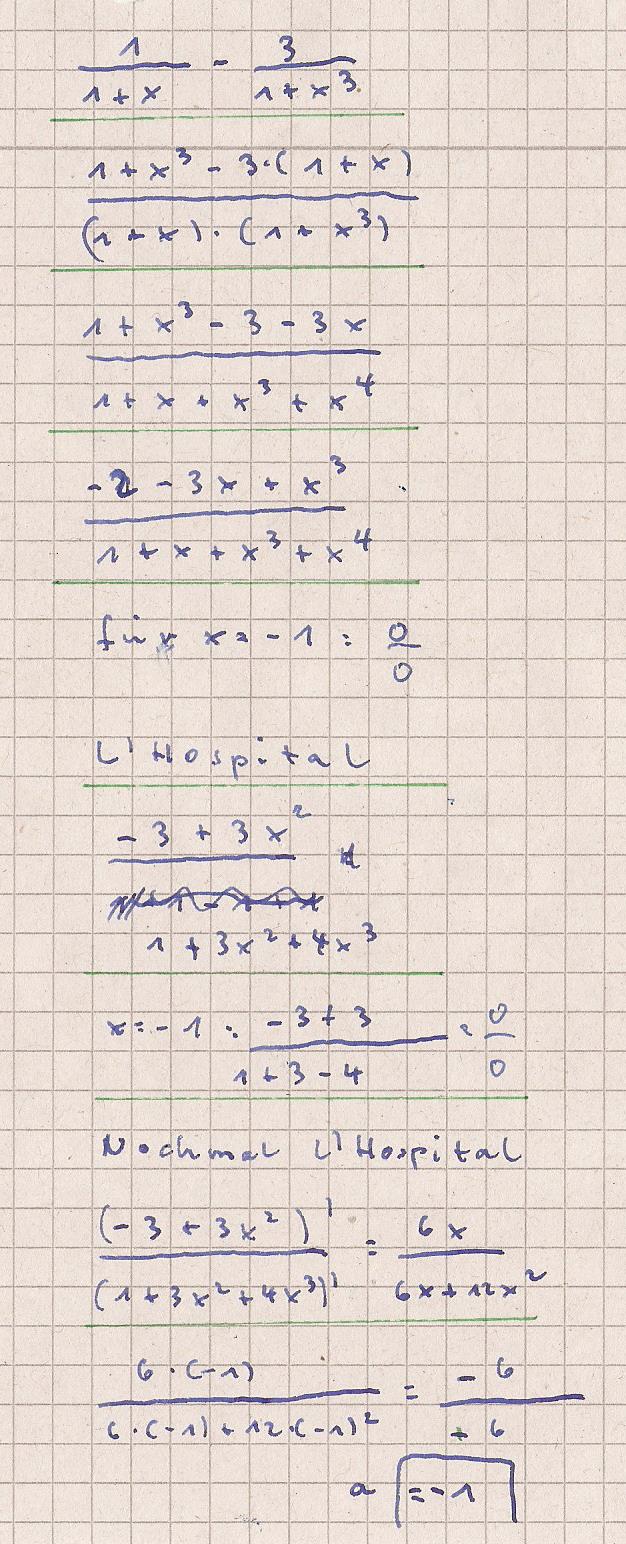 1/(1+x) - 3/(1+x³)
(1+x³ - 3·(1+x))/((1+x)·(1+x³))
(1+x³ - 3 - 3x)/(1+x+x³+x⁴)
(-2 - 3x + x³)/(1+x+x³+x⁴)
für x = -1 : 0/0
L'Hospital
(-3 + 3x²)/(1+3x²+4x³)
x = -1 : (-3+3)/(1+3-4) = 0/0
Nochmal L'Hospital
(-3+3x²)'/(1+3x²+4x³)' = 6x/(6x+12x²)
(6·(-1))/(6·(-1)+12·(-1)²) = -6/+6
a = -1